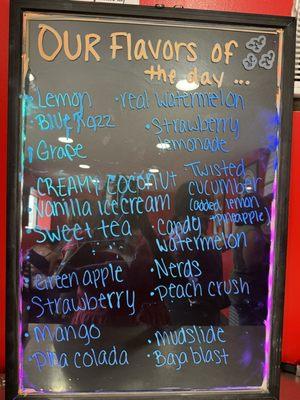 OUR Flavors of
the day ...
• Lemon
• Blue Razz
• Grape
• CREAMY COCONUT
• Vanilla ice cream
• Sweet tea
• Green apple
• Strawberry
• Mango
• Pina colada
• real watermelon
• Strawberry
Lemonade
• Twisted
cucumber
(added lemon
+ pineapple)
• Candy
watermelon
• Nerds
• Peach crush
• Mudslide
• Baja blast